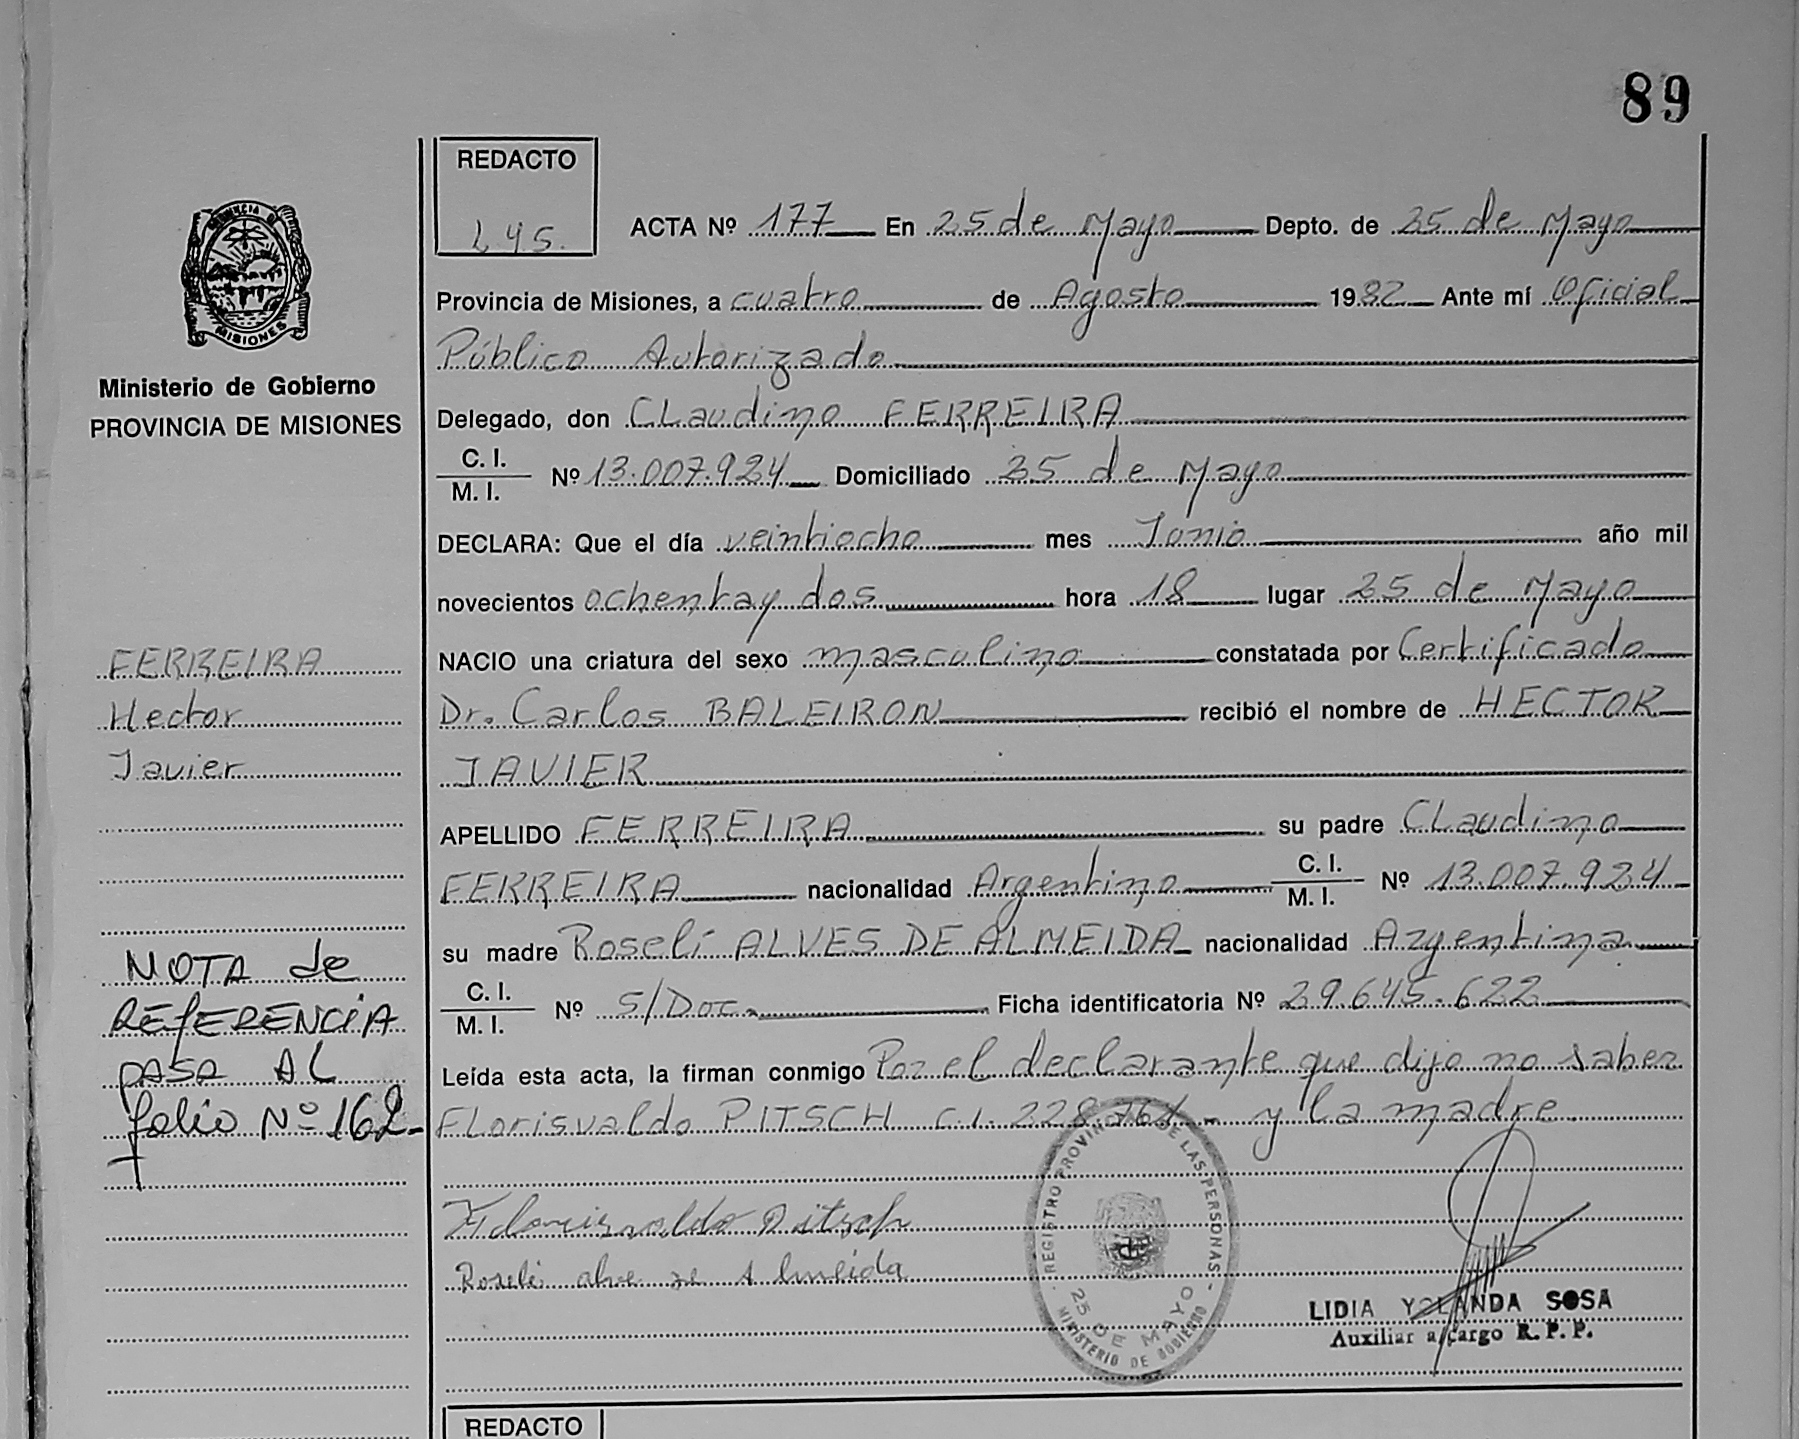 89
REDACTO
LYS.
ACTA Nº 177 En 25 de Mayo Depto. de 25 de Mayo
Provincia de Misiones, a cuatro de Agosto 1982 Ante mí Oficial
Público Autorizado
Delegado, don CLaudino FERREIRA
C. I.
M. I. Nº 13.007.924 Domiciliado 25 de Mayo
DECLARA: Que el día veintiocho mes Junio año mil
novecientos ochentay dos hora 18 lugar 25 de Mayo
NACIO una criatura del sexo masculino constatada por Certificado
Dr. Carlos BALEIRON recibió el nombre de HECTOR
JAVIER
APELLIDO FERREIRA su padre CLaudino
FERREIRA nacionalidad Argentino C. I. M. I. Nº 13.007.924
su madre Roselí ALVES DE ALMEIDA nacionalidad Argentina
C. I.
M. I. Nº S/Doc. Ficha identificatoria Nº 29.645.622
Leída esta acta, la firman conmigo Por el declarante que dijo no saber
FLorisvaldo PITSCH C.I. 228.761- y la madre
Roseli alve de Almeida
REGISTRO PROVINCIAL DE LAS PERSONAS
25 DE MAYO
MINISTERIO DE GOBIERNO
LIDIA YOLANDA SOSA
Auxiliar a cargo R. P. P.
PROVINCIA DE
MISIONES
Ministerio de Gobierno
PROVINCIA DE MISIONES
FERREIRA
Hector
Javier
NOTA de
REfERENCiA
pASA AL
folio Nº 162-
REDACTO